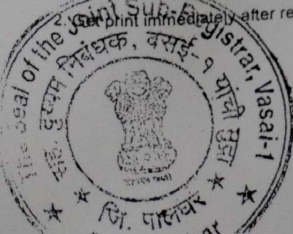 2. Get print immediately after re
The Seal of the Joint Sub-Registrar, Vasai-1
सह. दुय्यम निबंधक, वसई-१ यांची मुद्रा
जि. पालघर